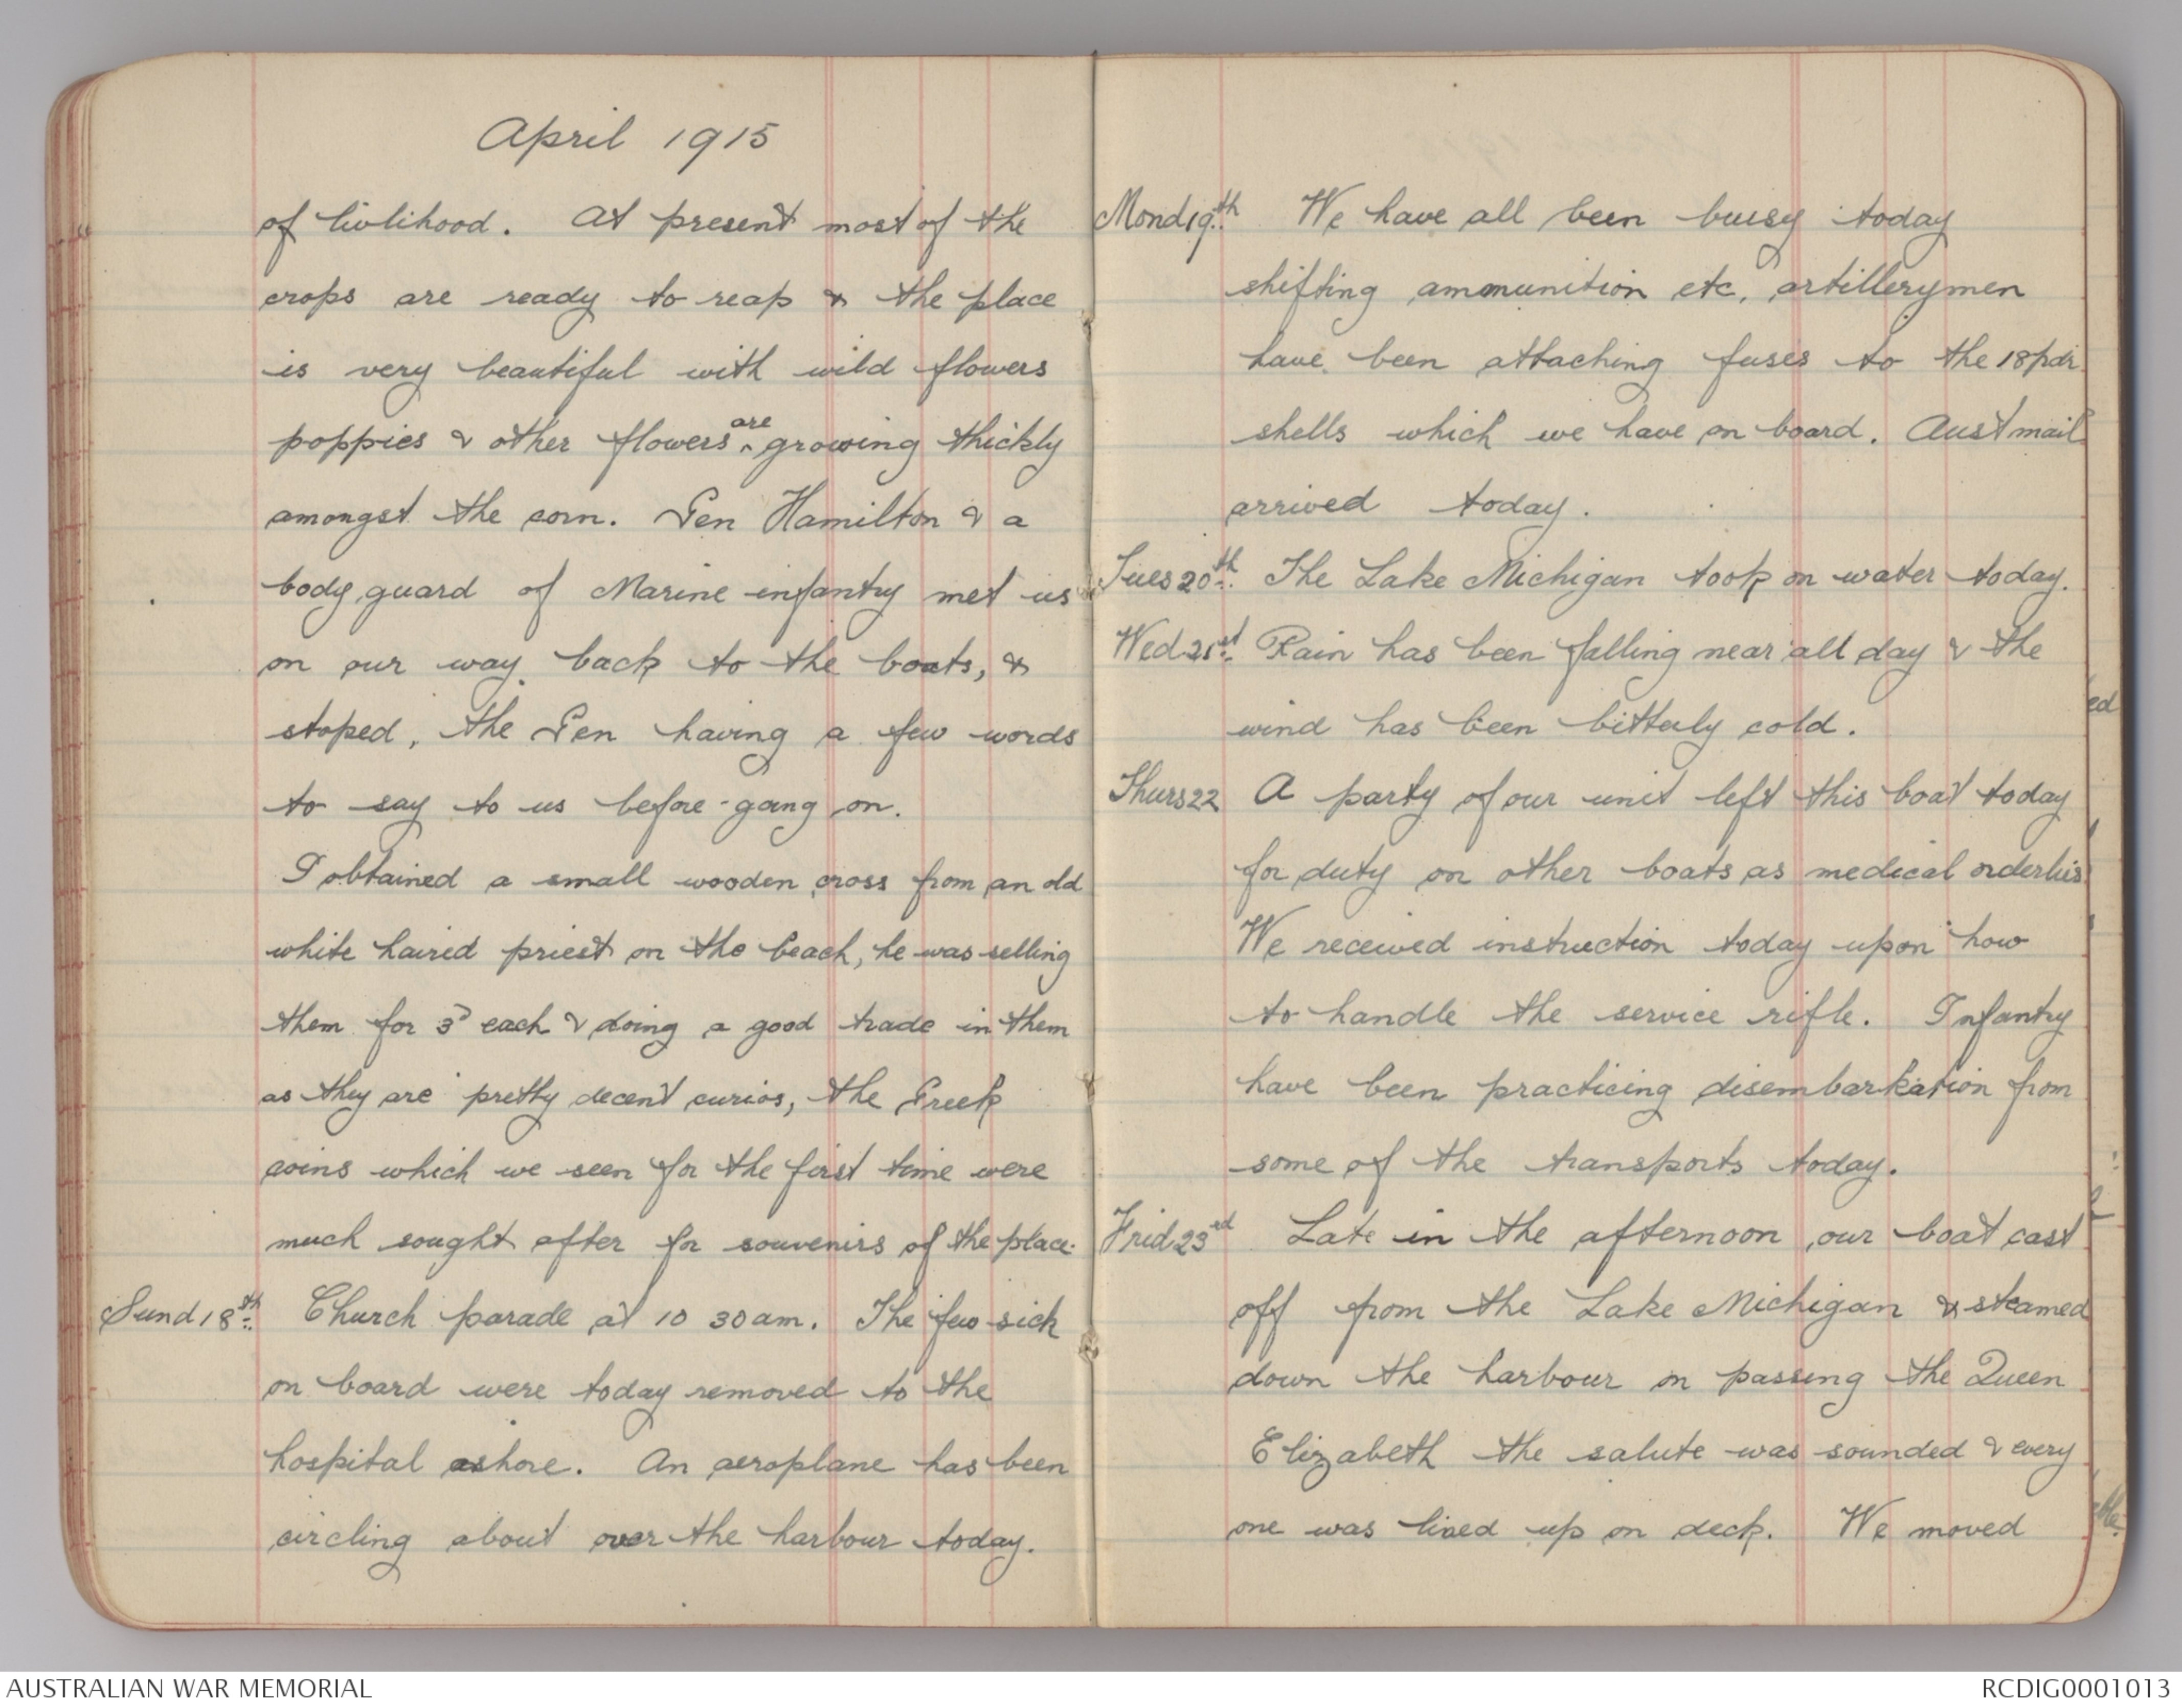 April 1915
of livlihood. At present most of the
crops are ready to reap & the place
is very beautiful with wild flowers
poppies & other flowers ^are growing thickly
amongst the corn. Gen Hamilton & a
body guard of Marine infantry met us
on our way back to the boats, &
stoped, the Gen having a few words
to say to us before going on.
I obtained a small wooden cross from an old
white haired priest on the beach, he was selling
them for 3D each & doing a good trade in them
as they are pretty decent curios, the Greek
coins which we seen for the first time were
much sought after for souvenirs of the place.
Sund 18th. Church parade at 10 30 am. The few sick
on board were today removed to the
hospital ashore. An aeroplane has been
circling about over the harbour today.
Mond 19th. We have all been buisy today
shifting ammunition etc, artillerymen
have been attaching fuses to the 18pdr
shells which we have on board. Aust mail
arrived today.
Tues 20th. The Lake Michigan took on water today.
Wed 21st. Rain has been falling near all day & the
wind has been bitterly cold.
Thurs 22 A party of our unit left this boat today
for duty on other boats as medical orderlies
We received instruction today upon how
to handle the service rifle. Infantry
have been practicing disembarkation from
some of the transports today.
Frid 23rd Late in the afternoon our boat cast
off from the Lake Michigan & steamed
down the harbour on passing the Queen
Elizabeth the salute was sounded & every
one was lined up on deck. We moved
ed
the
AUSTRALIAN WAR MEMORIAL
RCDIG0001013